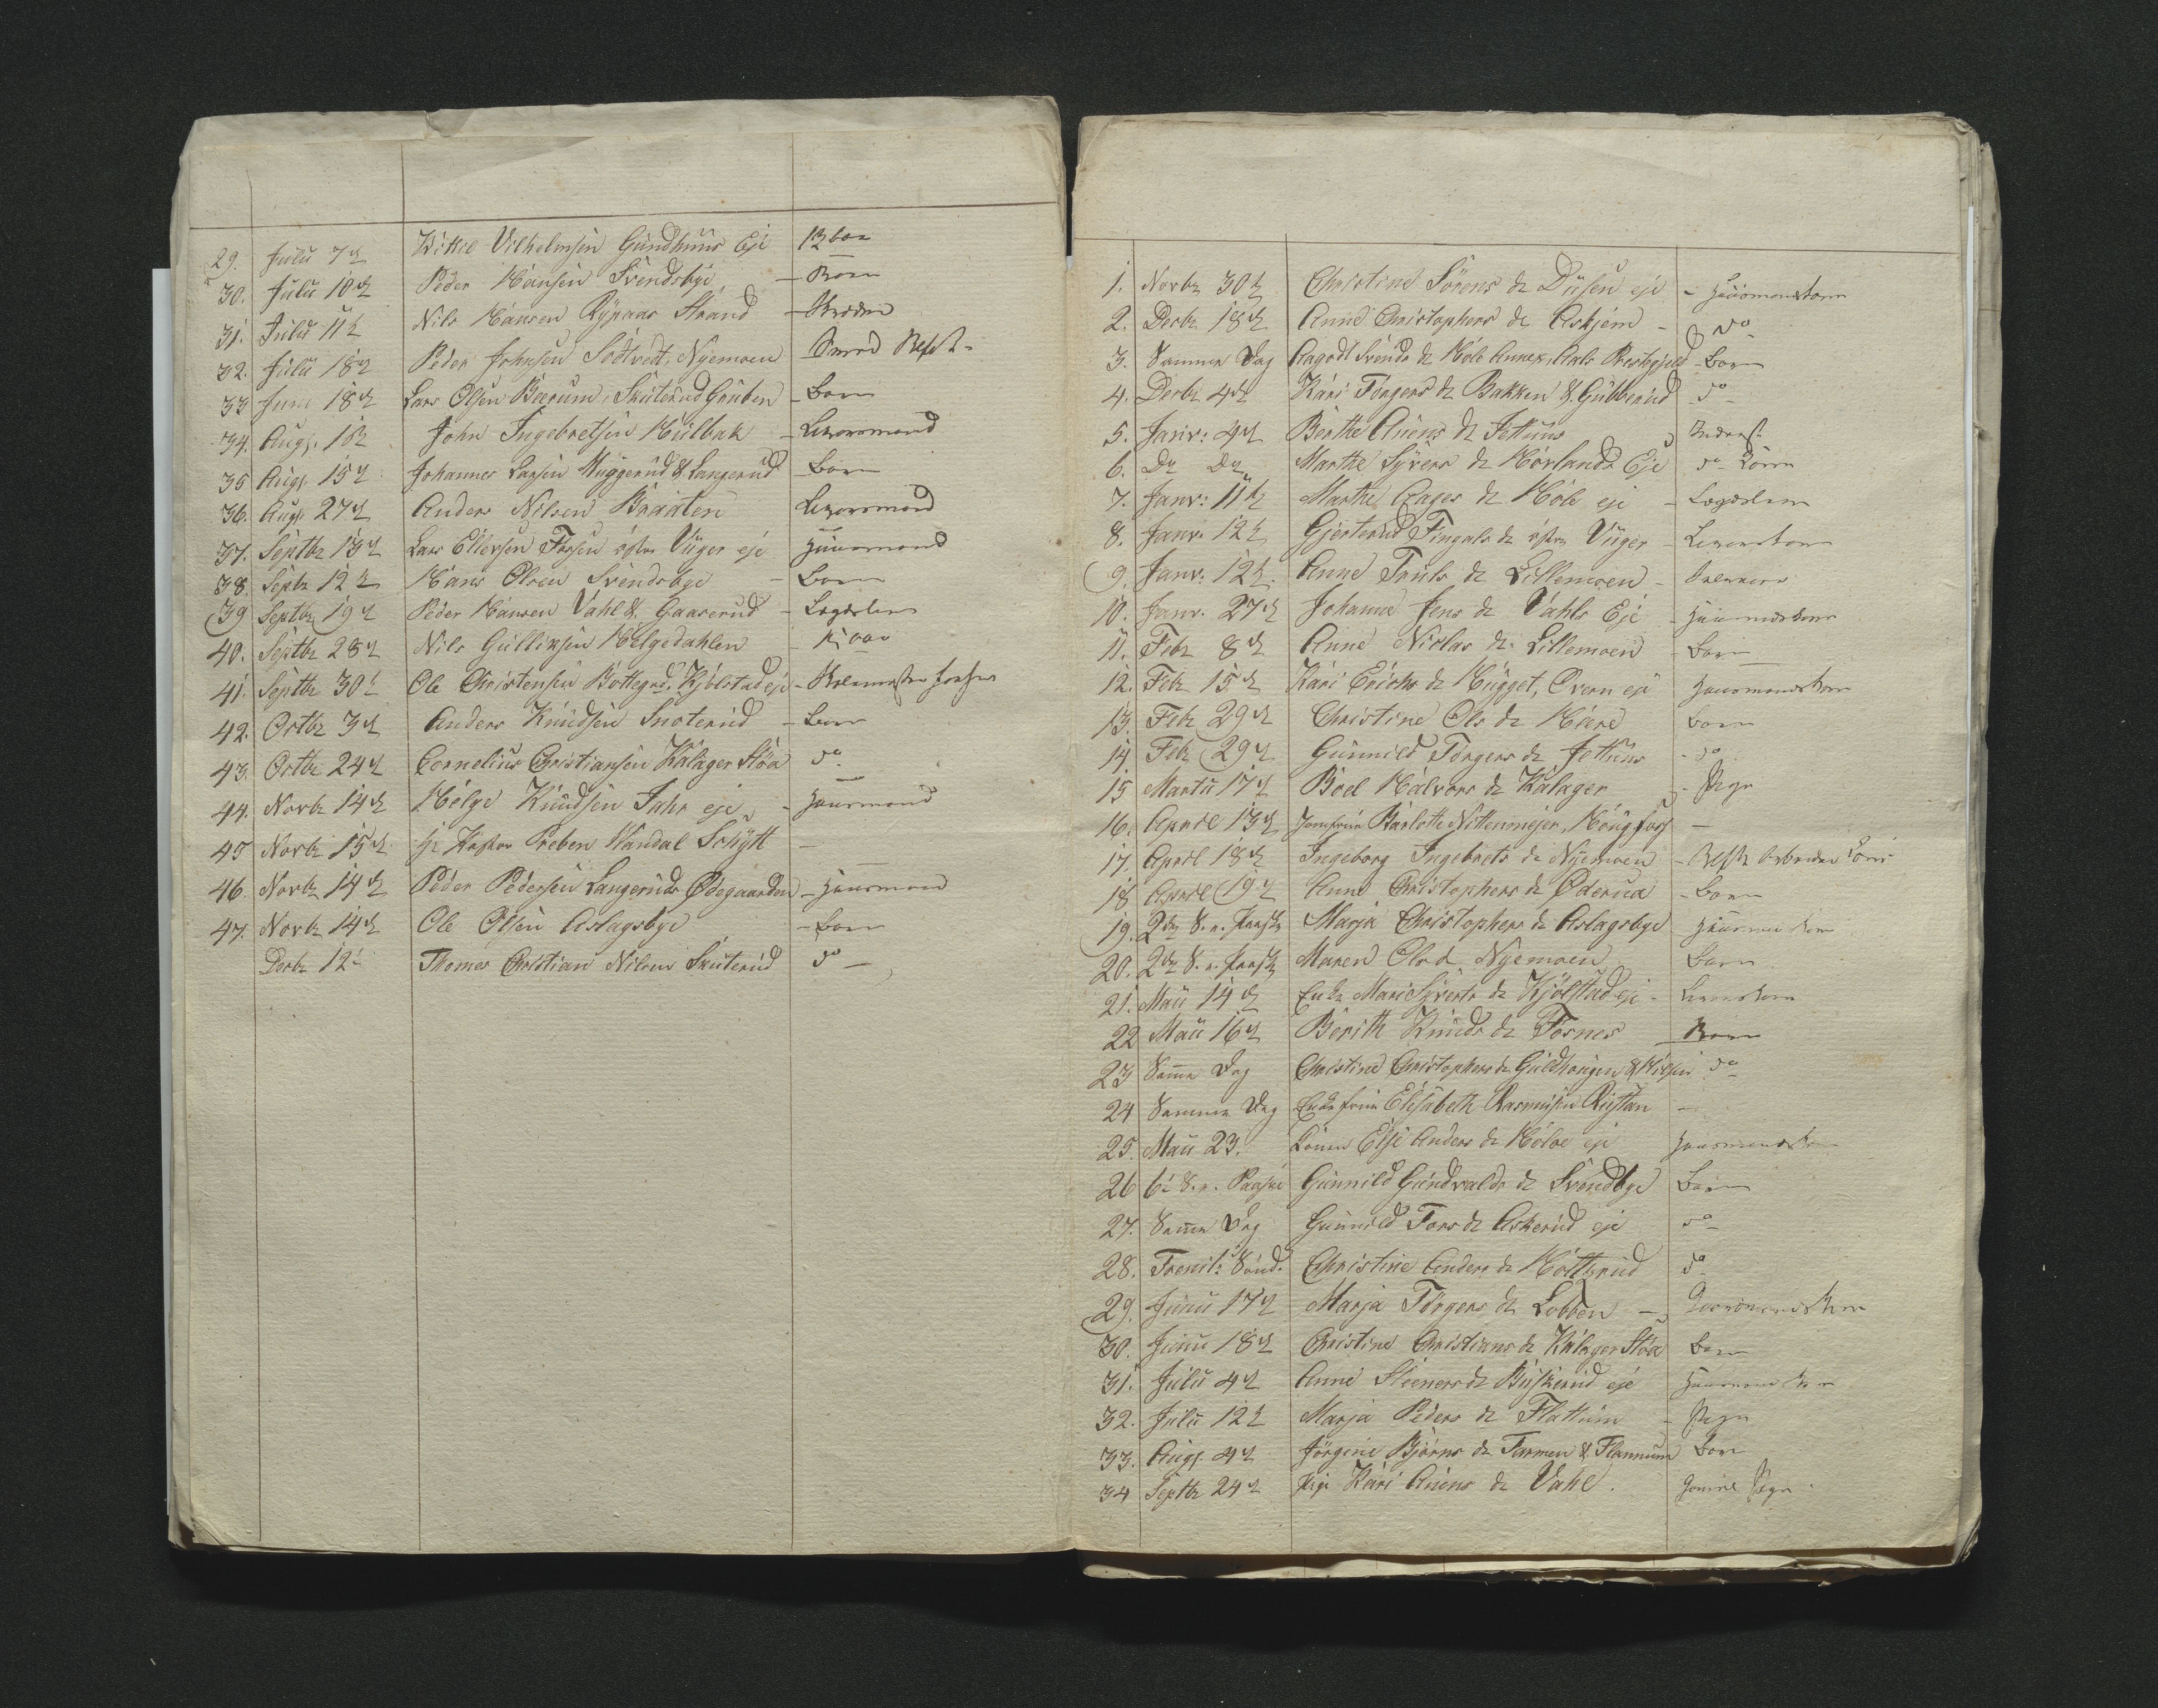 29. Julii 7de Kittil Vilhelmsen Gundhuus Eje
30. Julii 10de Peder Hansen Svendsbye - Barn
31. Julii 11te Nils Hansen Rypaas Strand
32. Julii 18de Peder Johnsen Sodtvedt, Nyemoen
33 Junii 18de Lars Olsen Bærum, Skuterud Gruben - Barn
34. Augs. John Ingebretsen Hulbak - Leyermand
35 Augs. 15de Johannes Larsen Muggerud & Langerud Barn
36. Augs. 27de Anders Nilsen Braaten Leyermand
37. Septbr 13de Lars Ellevsen Fossen østre Viiger eje Huusmand
38. Septbr 12te Hans Olsen Svendsbye - Barn
39 Septbr 19de Peder Hansen Vahl & Gaaserud - Lægdslem
40. Septbr 28de Nils Gulliksen Helgedahlen
41. Septbr 30te Ole Christensen Bottegrd. Kjølstad eje
42. Octbr 3de Anders Knudsen Snoterud - Barn
43. Octbr 24de Cornelius Christiansen Kalager Støa do
44. Novbr 14de Helge Knudsen Fahr eje - Huusmand
45 Novbr 15de Hr Pastor Preben Wandal Schytt -
46. Novbr 14de Peder Pedersen Langeruds Ødegaarden - Huusmand
47. Novbr 14de Ole Olsen Aslagsbye - Barn
Decbr 12te Thomas Christian Nilsen Skuterud do -
1. Novbr 30te Christine Sørens dr Dusen eje - Huusmandskone
2. Decbr 18de Anne Christophers dr Askjem - do
3. Samme Dag Aagodt Svends dr Hole Annex, Aals Præstegield - Barn
4. Decbr 4de Kari Torgers dr Bakken & Gubberud do
5. Janv: 4de Berthe Auens dr Jettuns
6. Do Do Marthe Syvers dr Hovlands Eje do Kone
7. Janv: 11te Marthe Aages dr Hole eje - Lægdslem
8. Janv: 12te Gjertrud Tingals dr østre Viiger -
9. Janv: 12te Anne Truls dr Lillemoen -
10. Janv. 27de Johanne Jens dr Vahls Eje - Huusmandskone
11. Febr 8de Anne Niclas dr Lillemoen - Barn
12. Febr 15de Kari Erichs dr Hugget, Overn eje Huusmandskone
13. Febr 29de Christine Ols dr Haare Barn
14. Febr 29de Gunnild Torgers dr Jettuns - do
15 Martii 17de Boel Halvors dr Kalager - Pige
16. April 13de Jomfrue Barlotte Nittenmejer, Hougfoss -
17. April 18de Ingeborg Ingebrets dr Nyemoen -
18 April 19de Anne Christophers dr Øderud - Barn
19. 2den S. e. Paaske Marja Christophers dr Aslagsbye Huusmands Kone
20. 2den S. e. Paaske Maren Ols d Nyemoen Barn
21. Maii 14de Enke Mari Syverts dr Kjølstad eje -
22 Maii 16de Berith Knuds dr Fosnes Barn
23 Samme Dag Christine Christophers dr Guldhaugen do
24 Samme Dag Enkefrue Elisabeth Rasmusen Rustan -
25. Maii 23. Konen Elsi Anders dr Holoe eje Huusmandskone
26 6te S. e. Paaske Gunnild Gundvalds dr Svendbye Barn
27. Samme Dag Gunnild Tors dr Askerud eje do
28. Trenit: Sønd. Christine Anders dr Hottrud do
29. Junii 17de Marja Torgers dr Lobben - Gaardmands Kone
30. Junii 18de Christine Christians dr Kalager Støa Barn
31. Julii 4de Anne Steeners dr Buskerud eje Huusmands Kone
32. Julii 12te Marja Peders dr Flattum - Pige
33. Augs. 4de Jørgine Bjørns dr Tormen & Flannum Barn
34 Septbr 24de Pige Kari Auens dr Vahl. Gamel Pige